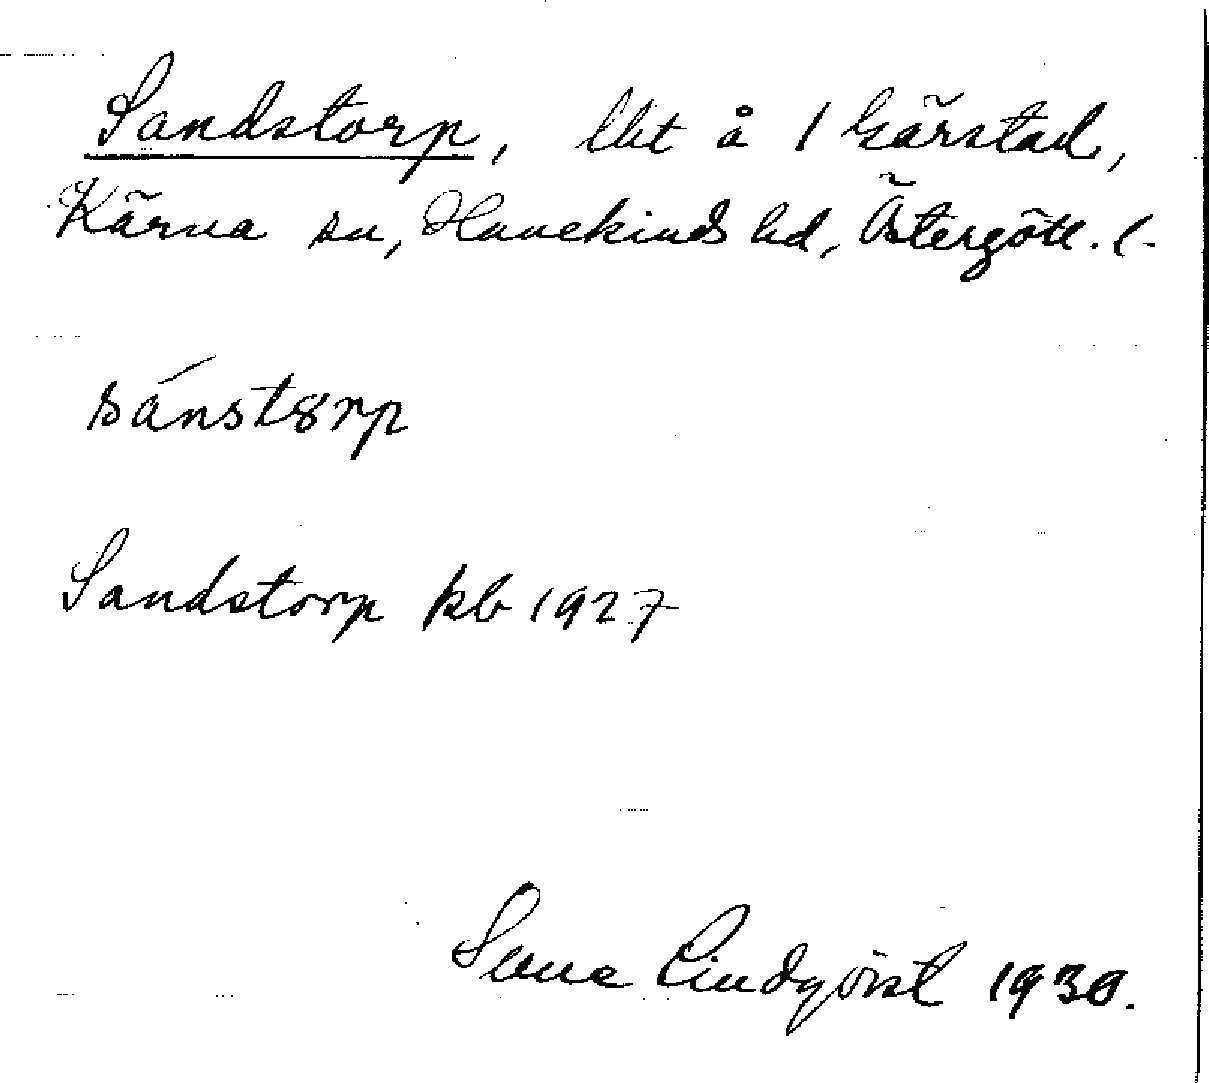 Sandstorp, lht å 1 Gärstad,
Kärna sn, Hanekinds hd, Östergötl. l.
sánstorp
Sandstorp kb 1927
Sune Lindqvist 1930.